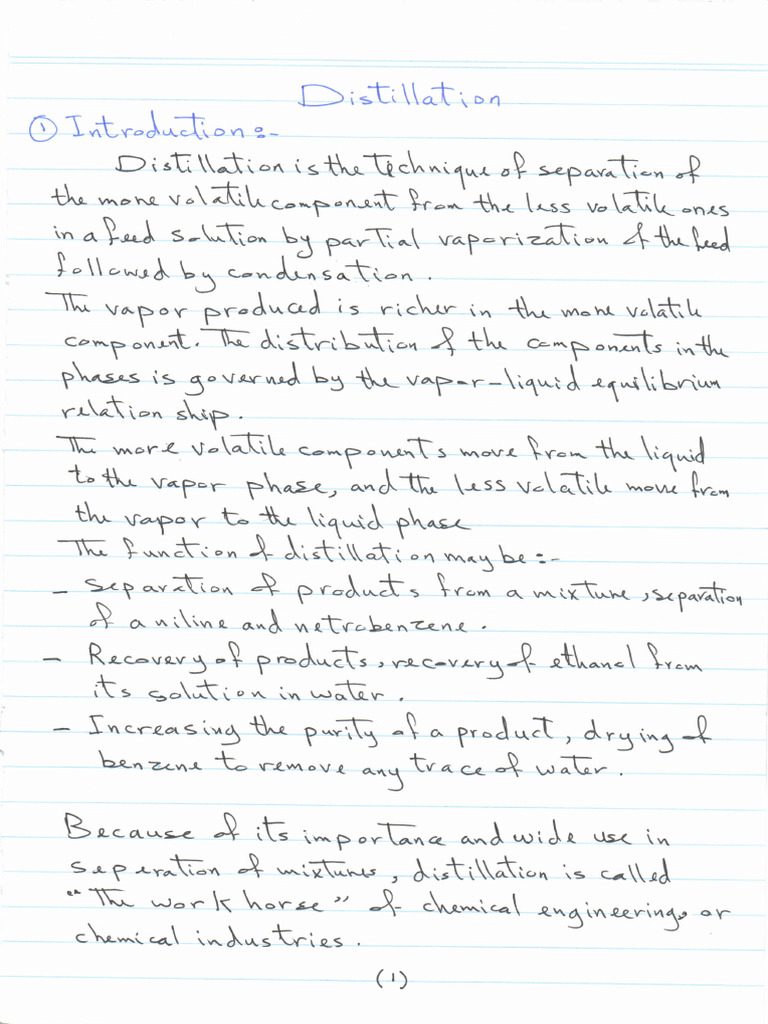 Distillation
① Introduction:-
Distillation is the technique of separation of
the more volatile component from the less volatile ones
in a feed solution by partial vaporization of the feed
followed by condensation.
The vapor produced is richer in the more volatile
component. The distribution of the components in the
phases is governed by the vapor-liquid equilibrium
relation ship.
The more volatile components move from the liquid
to the vapor phase, and the less volatile move from
the vapor to the liquid phase
The function of distillation may be :-
- separation of products from a mixture, separation
of aniline and netrobenzene.
- Recovery of products, recovery of ethanol from
its solution in water.
- Increasing the purity of a product, drying of
benzene to remove any trace of water.
Because of its importance and wide use in
seperation of mixtures, distillation is called
"The work horse" of chemical engineering, or
chemical industries.
(1)